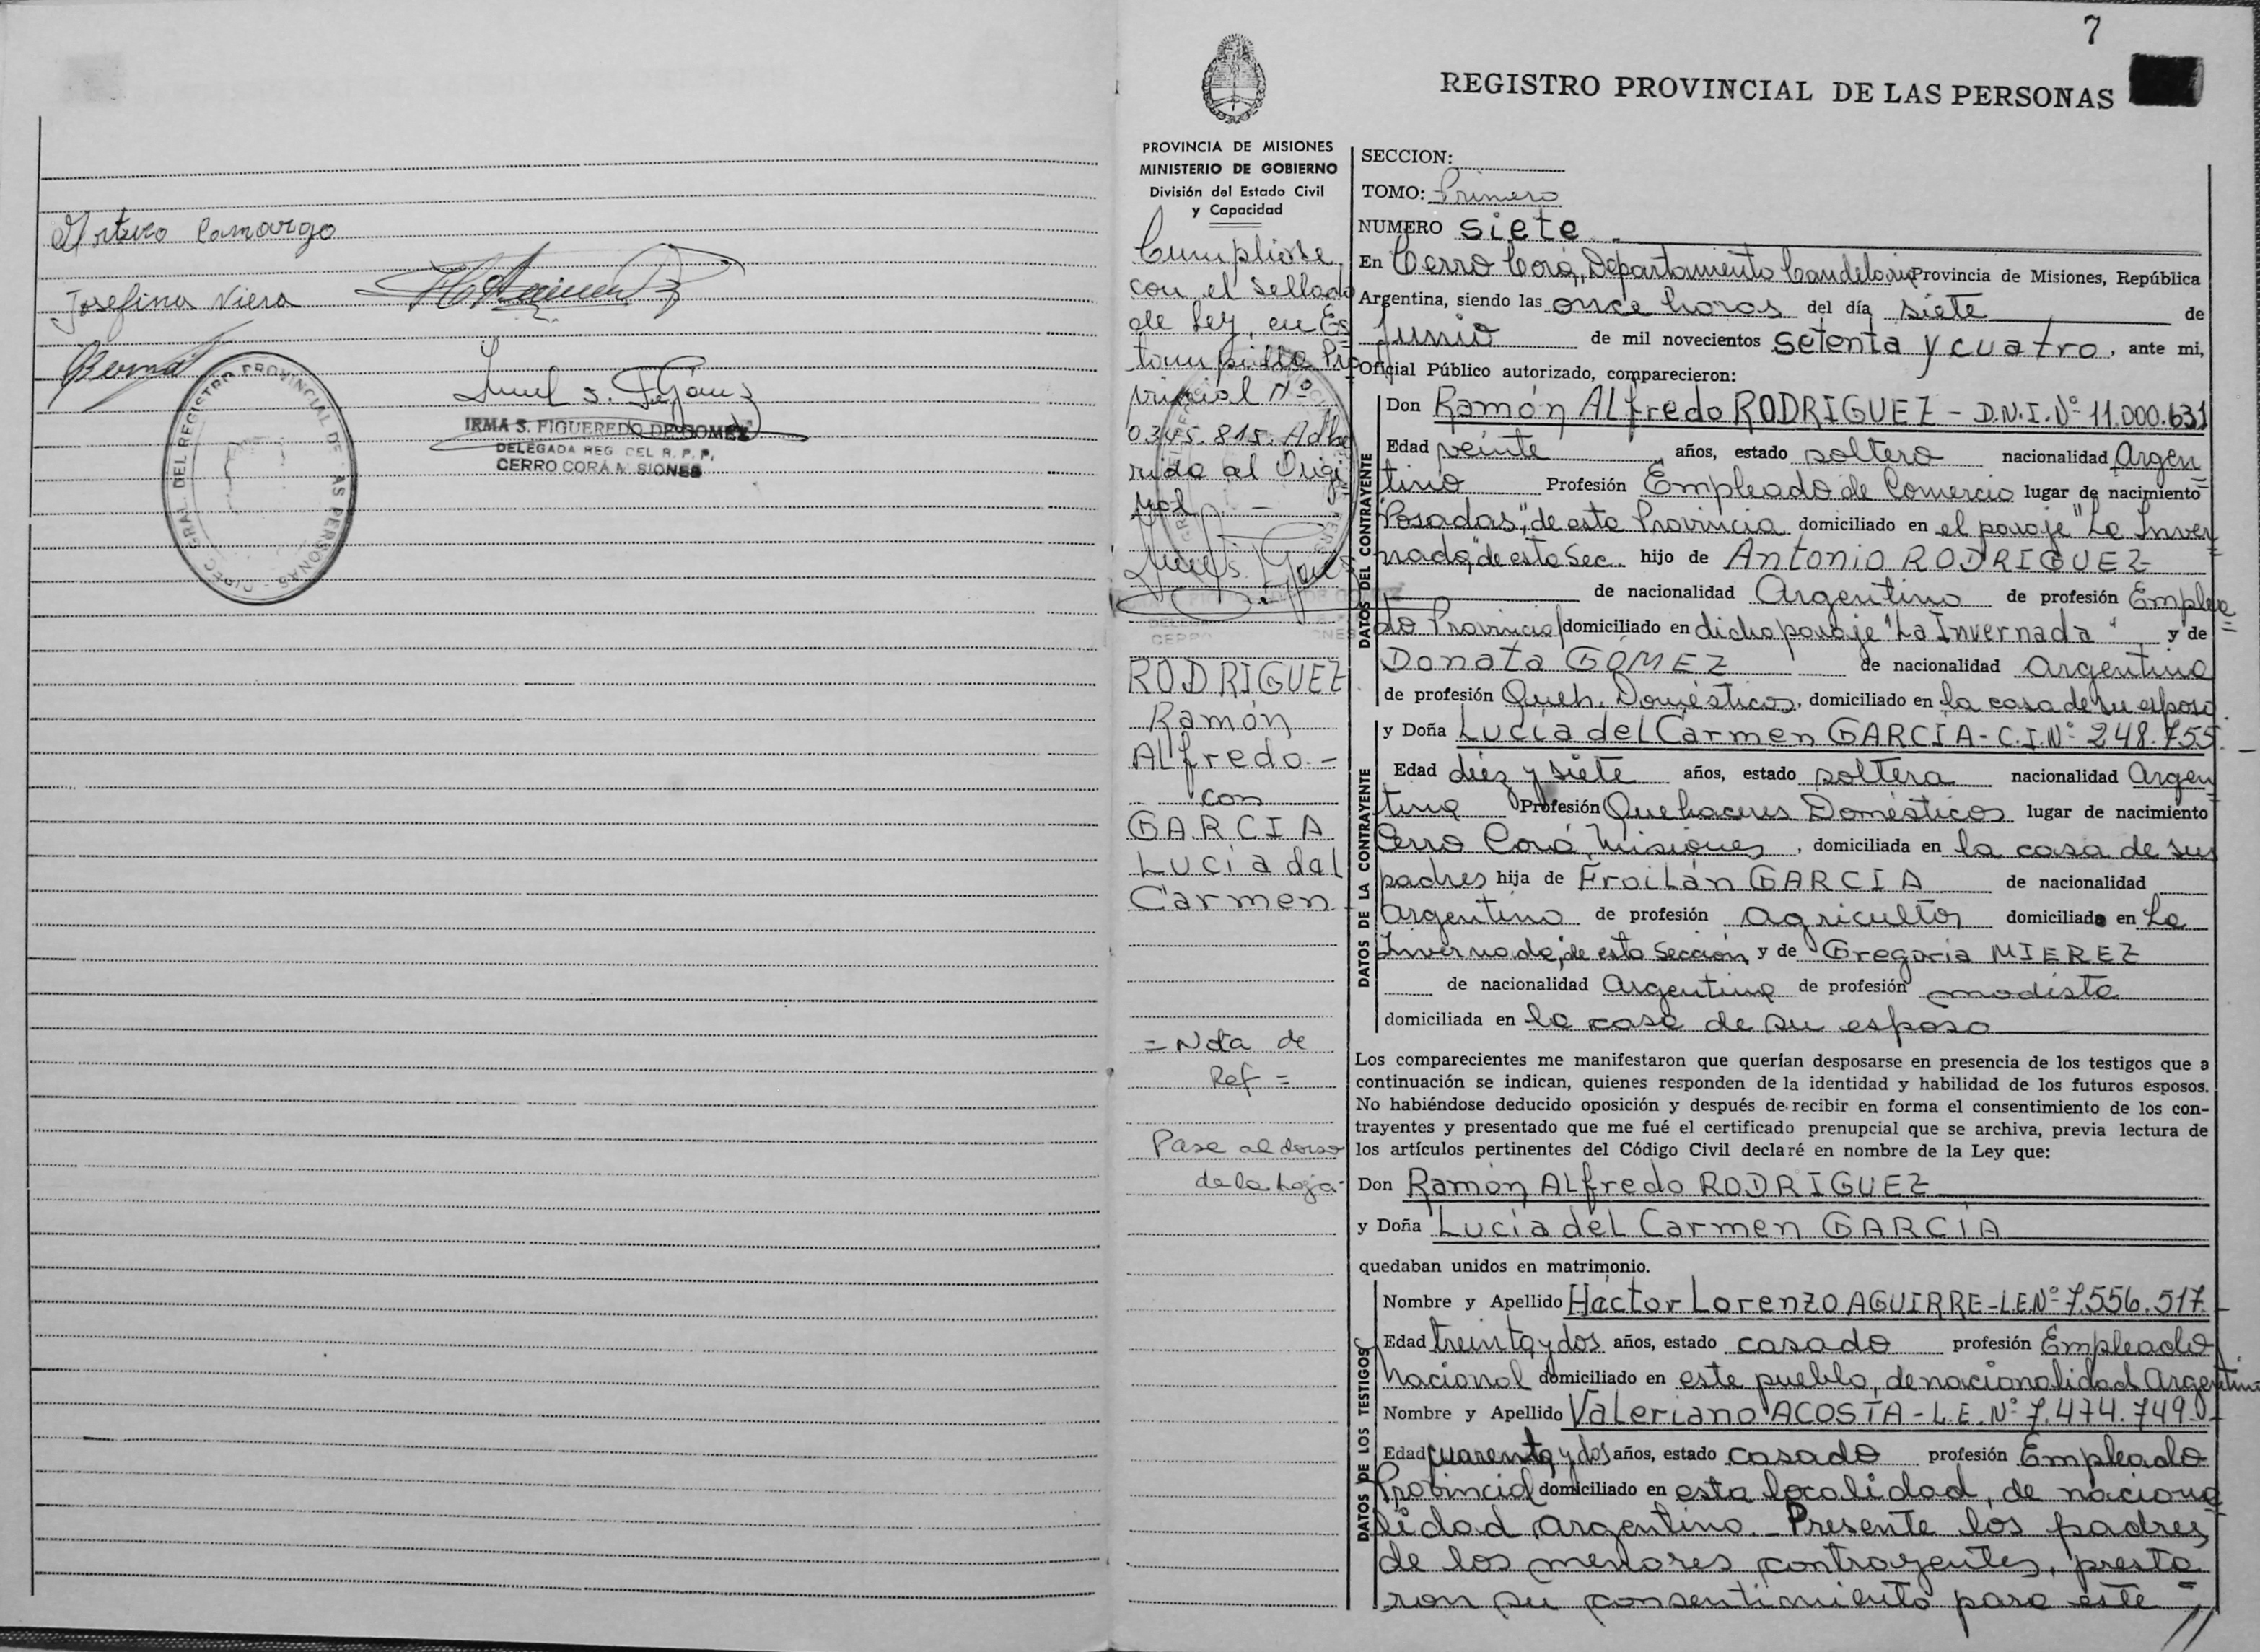 Arturo Camargo
Josefina Niera
Bernal
DIREC. GRAL. DEL REGISTRO PROVINCIAL DE LAS PERSONAS
IRMA S. FIGUEREDO DE GOMEZ
DELEGADA REG. DEL R. P. P.
CERRO CORÁ MISIONES
7
REGISTRO PROVINCIAL DE LAS PERSONAS
PROVINCIA DE MISIONES
MINISTERIO DE GOBIERNO
División del Estado Civil
y Capacidad
Cumpliose
con el Sellado
de Ley, en Es
tampilla Pro
vincial Nº
0345.815. Adhe
rida al Origi
nal. -
RODRIGUEZ
Ramón
ALfredo.-
con
GARCIA
Lucía del
Carmen
= Nota de
Ref =
Pase al dorso
de la hoja-
SECCION:
TOMO: Primero
NUMERO siete.
En Cerro Corá, Departamento Candelaria Provincia de Misiones, República
Argentina, siendo las once horas del día siete de
Junio de mil novecientos setenta y cuatro, ante mi,
Oficial Público autorizado, comparecieron:
DATOS DEL CONTRAYENTE
Don Ramón ALfredo RODRIGUEZ - D.N.I. Nº 11.000.631
Edad veinte años, estado soltero nacionalidad Argen
tino Profesión Empleado de Comercio lugar de nacimiento
"Posadas", de esta Provincia domiciliado en el paraje "La Inver
nada" de esta Sec. hijo de Antonio RODRIGUEZ
de nacionalidad Argentino de profesión Emplea
do Provincial domiciliado en dicho paraje "La Invernada" y de
Donata GÓMEZ de nacionalidad argentina
de profesión Queh. Domésticos, domiciliado en la casa de su esposo.
DATOS DE LA CONTRAYENTE
y Doña Lucía del Carmen GARCÍA - C.I. Nº 248.755. -
Edad diez y siete años, estado soltera nacionalidad Argen
tina Profesión Quehaceres Domésticos lugar de nacimiento
Cerro Corá, Misiones, domiciliada en la casa de sus
padres hija de Froilán GARCIA de nacionalidad
argentino de profesión agricultor domiciliado en La
Invernada, de esta Sección y de Gregoria MIEREZ
de nacionalidad Argentina de profesión modista
domiciliada en la casa de su esposo
Los comparecientes me manifestaron que querían desposarse en presencia de los testigos que a
continuación se indican, quienes responden de la identidad y habilidad de los futuros esposos.
No habiéndose deducido oposición y después de recibir en forma el consentimiento de los con-
trayentes y presentado que me fué el certificado prenupcial que se archiva, previa lectura de
los artículos pertinentes del Código Civil declaré en nombre de la Ley que:
Don Ramón ALfredo RODRIGUEZ
y Doña Lucía del Carmen GARCÍA
quedaban unidos en matrimonio.
DATOS DE LOS TESTIGOS
Nombre y Apellido Hactor Lorenzo AGUIRRE - L.E. Nº 7.556.517. -
Edad treinta y dos años, estado casado profesión Empleado
Nacional domiciliado en este pueblo, de nacionalidad Argentino
Nombre y Apellido Valeriano ACOSTA - L.E. Nº 7.474.749. -
Edad cuarenta y dos años, estado casado profesión Empleado
Provincial domiciliado en esta localidad, de naciona
lidad argentino. Presente los padres
de los menores contrayentes, presta
ron su consentimiento para este //